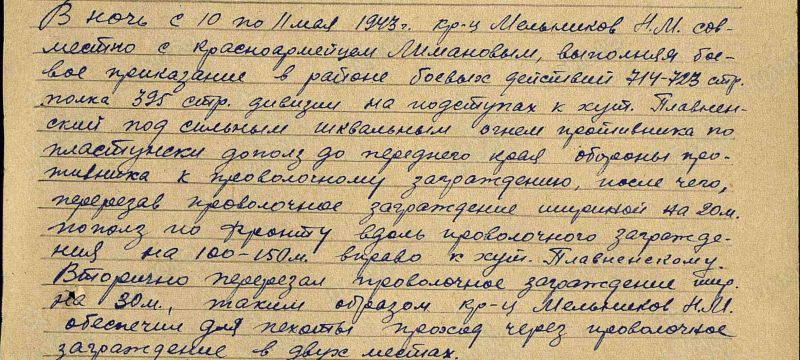 В ночь с 10 по 11 мая 1943 г. кр-ц Мельников Н.М. сов-
местно с красноармейцем Лимановым, выполняя бое-
вое приказание в районе боевых действий 714-723 стр.
полка 395 стр. дивизии на подступах к хут. Плавнен-
ский под сильным шквальным огнем противника по
пластунски дополз до переднего края обороны про-
тивника к проволочному заграждению, после чего,
перерезав проволочное заграждение шириной на 20 м.
пополз по фронту вдоль проволочного загражде-
ния на 100-150 м. вправо к хут. Плавненскому.
Вторично перерезал проволочное заграждение шир.
на 30 м., таким образом кр-ц Мельников Н.М.
обеспечил для пехоты проход через проволочное
заграждение в двух местах.